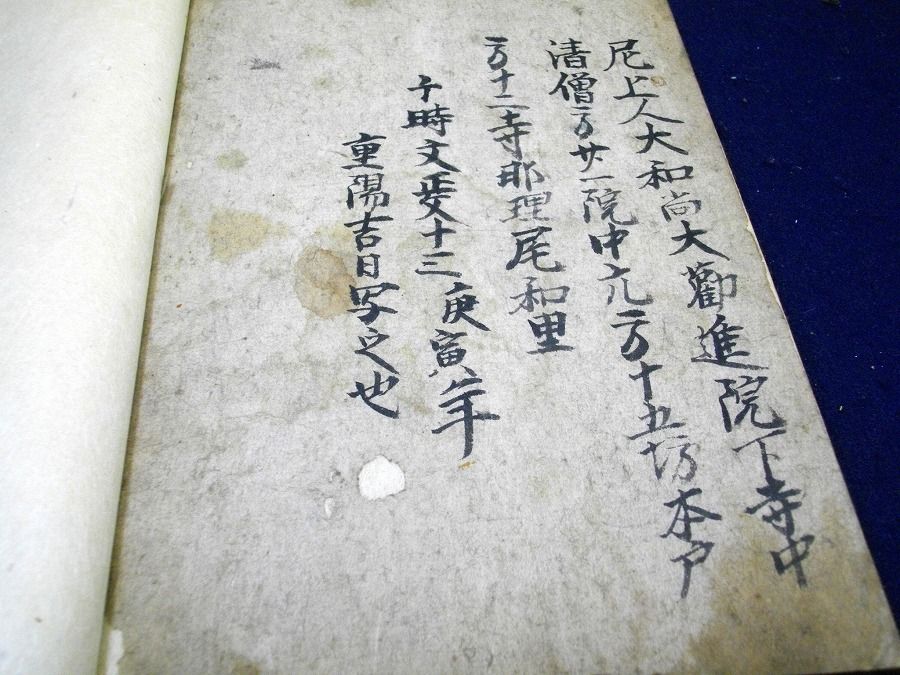 尼上人大和尚大勸進院下寺中
清僧方廿一院中亢方十五坊本戸
方十二寺那理尾和里
于時文政十三庚寅年
重陽吉日写之也